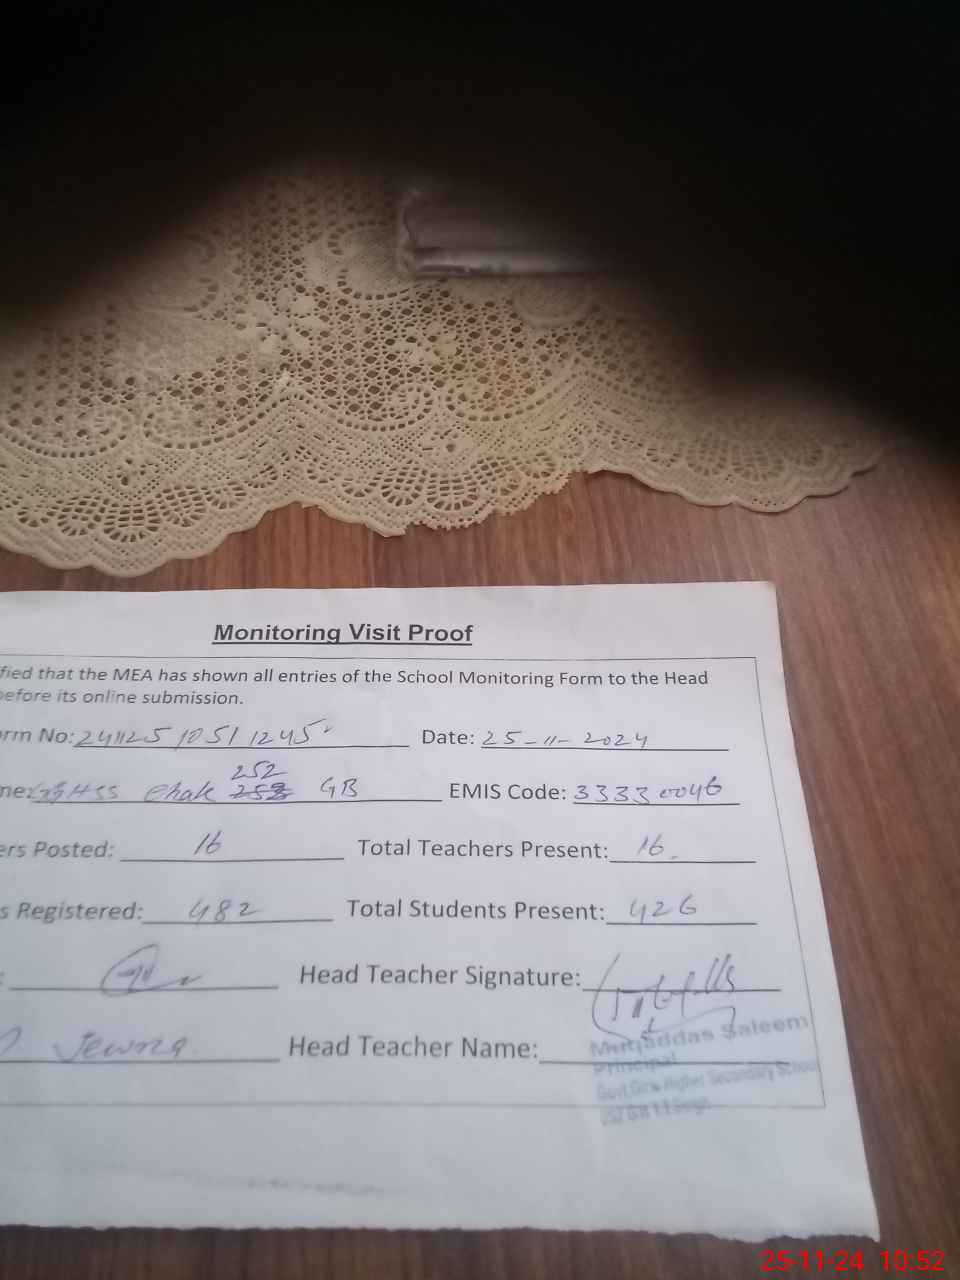 Monitoring Visit Proof
fied that the MEA has shown all entries of the School Monitoring Form to the Head
efore its online submission.
rm No: 241125 1051 1245 Date: 25-11-2024
252
me: GGHSS Chak GB EMIS Code: 33330046
ers Posted: 16 Total Teachers Present: 16
s Registered: 482 Total Students Present: 426
Head Teacher Signature:
Head Teacher Name:
Muqaddas Saleem
Principal
Govt. Girls Higher Secondary School
25-11-24 10:52